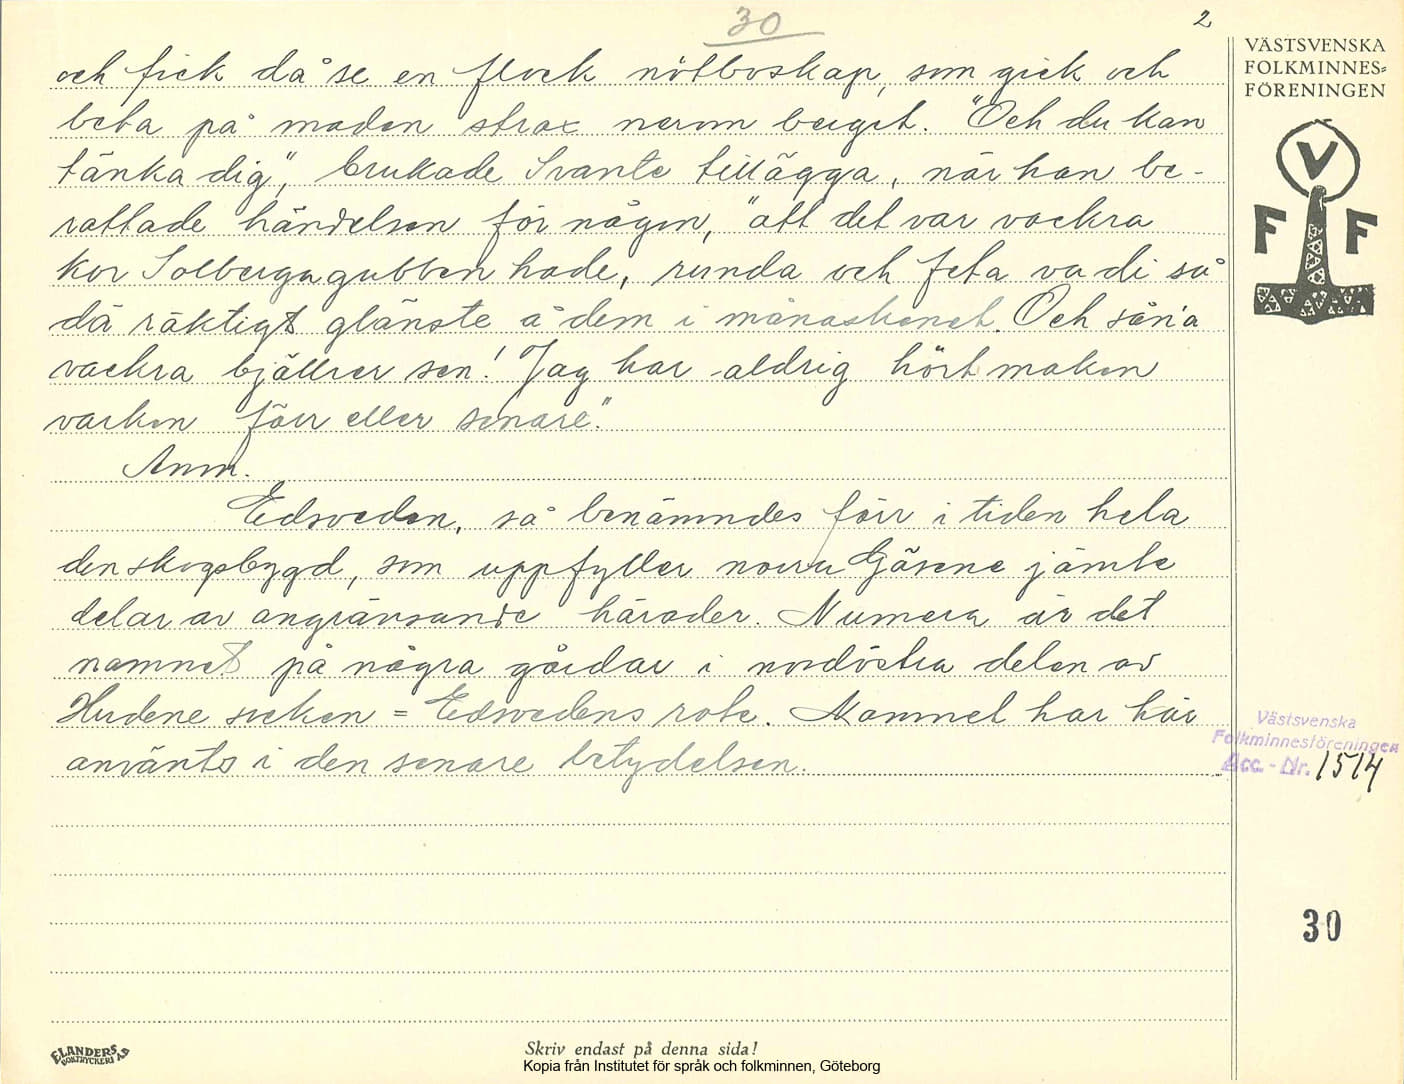 30
2
och fick då se en flock nötboskap, som gick och
beta på maden strax nerom berget. "Och du kan
tänka dig", brukade Svante tillägga, när han be-
rättade händelsen för någon, "att det var vackra
kor Solbergagubben hade, runda och feta va di så
dä räktigt glänste å dem i månaskenet. Och sån'a
vackra bjällrer sen! Jag har aldrig hört maken
varken förr eller senare."
Anm.
Edsveden, så benämndes förr i tiden hela
den skogsbygd, som uppfyller norra Gäsene jämte
delar av angränsande härader. Numera är det
namnet på några gårdar i nordöstra delen av
Hudene socken = Edsvedens rote. Namnet har här
använts i den senare betydelsen.
VÄSTSVENSKA
FOLKMINNES=
FÖRENINGEN
V
F F
Västsvenska
Folkminnesföreningen
Acc. - Nr. 1514
30
ELANDERS
BOKTRYCKERI AB
Skriv endast på denna sida!
Kopia från Institutet för språk och folkminnen, Göteborg